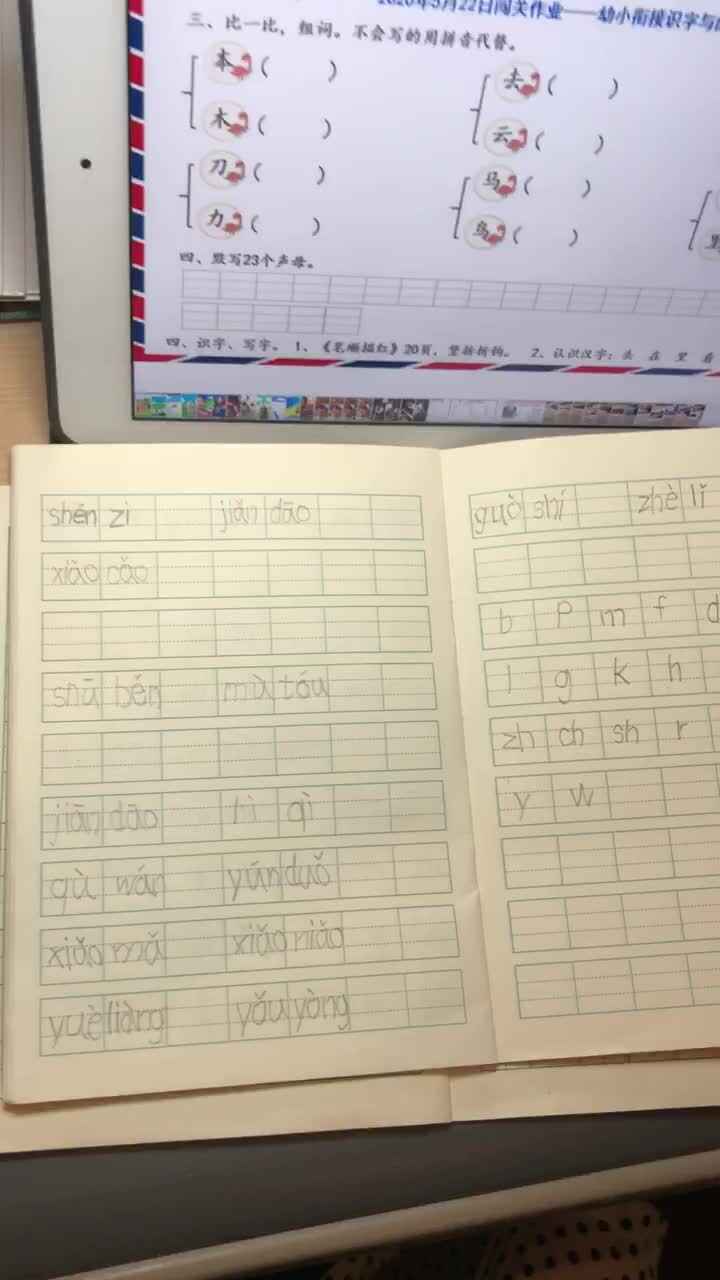 2020年5月22日闯关作业——幼小衔接识字与
三、比一比，组词。不会写的用拼音代替。
本( ) 去( )
木( ) 云( )
刀( ) 马( )
力( ) 鸟( )
四、默写23个声母。
四、识字、写字。 1、《笔顺描红》20页，竖折折钩。 2、认识汉字：去 在 里 看
shén zi jiǎn dāo
xiǎo cǎo
shū běn mù tóu
jiān dāo lì qì
qù wán yún duǒ
xiǎo mǎ xiǎo niǎo
yuè liàng yǒu yòng
guò shí zhè lǐ
b p m f d
l g k h
zh ch sh r
y w